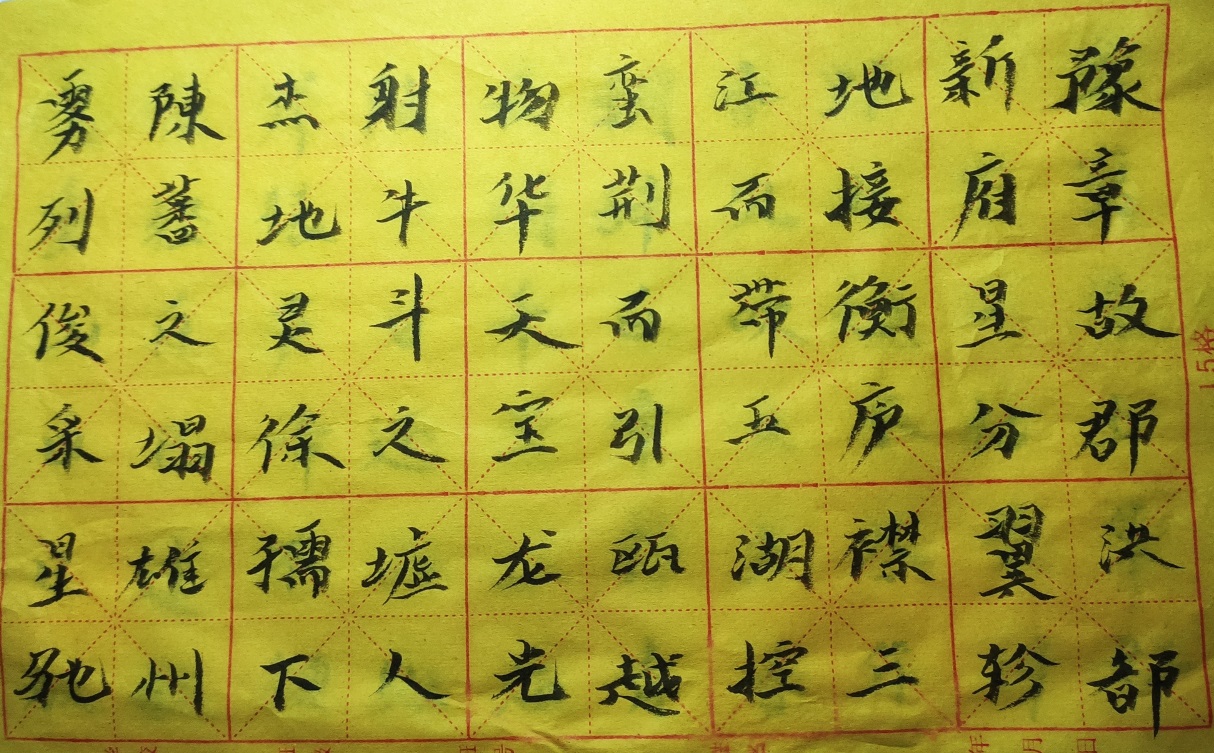 豫章故郡洪都
新府星分翼轸
地接衡庐襟三
江而带五湖控
蛮荆而引瓯越
物华天宝龙光
射牛斗之墟人
杰地灵徐孺下
陳蕃之塌雄州
雾列俊采星驰
15格
年 月 日